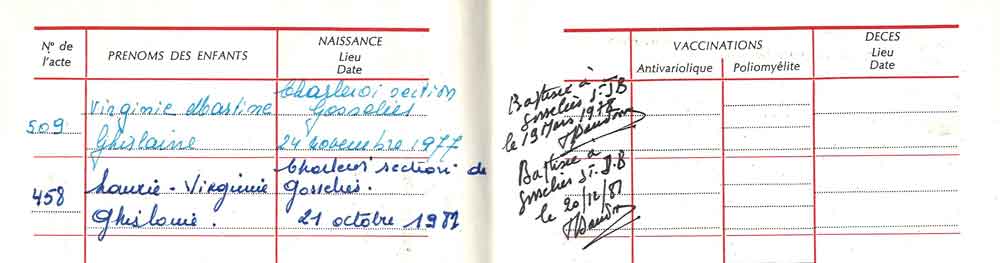 N° de l'acte
PRENOMS DES ENFANTS
NAISSANCE
Lieu
Date
509
Virginie Martine
Ghislaine
Charleroi section
Gosselies
24 novembre 1977
458
Laurie - Virginie
Ghislaine.
Charleroi section de
Gosselies.
21 octobre 1981
VACCINATIONS
Antivariolique
Poliomyélite
DECES
Lieu
Date
Baptisée à
Gosselies St. J B
le 19 Mars 1978
Baptisée à
Gosselies St. J. B
le 20/12/81